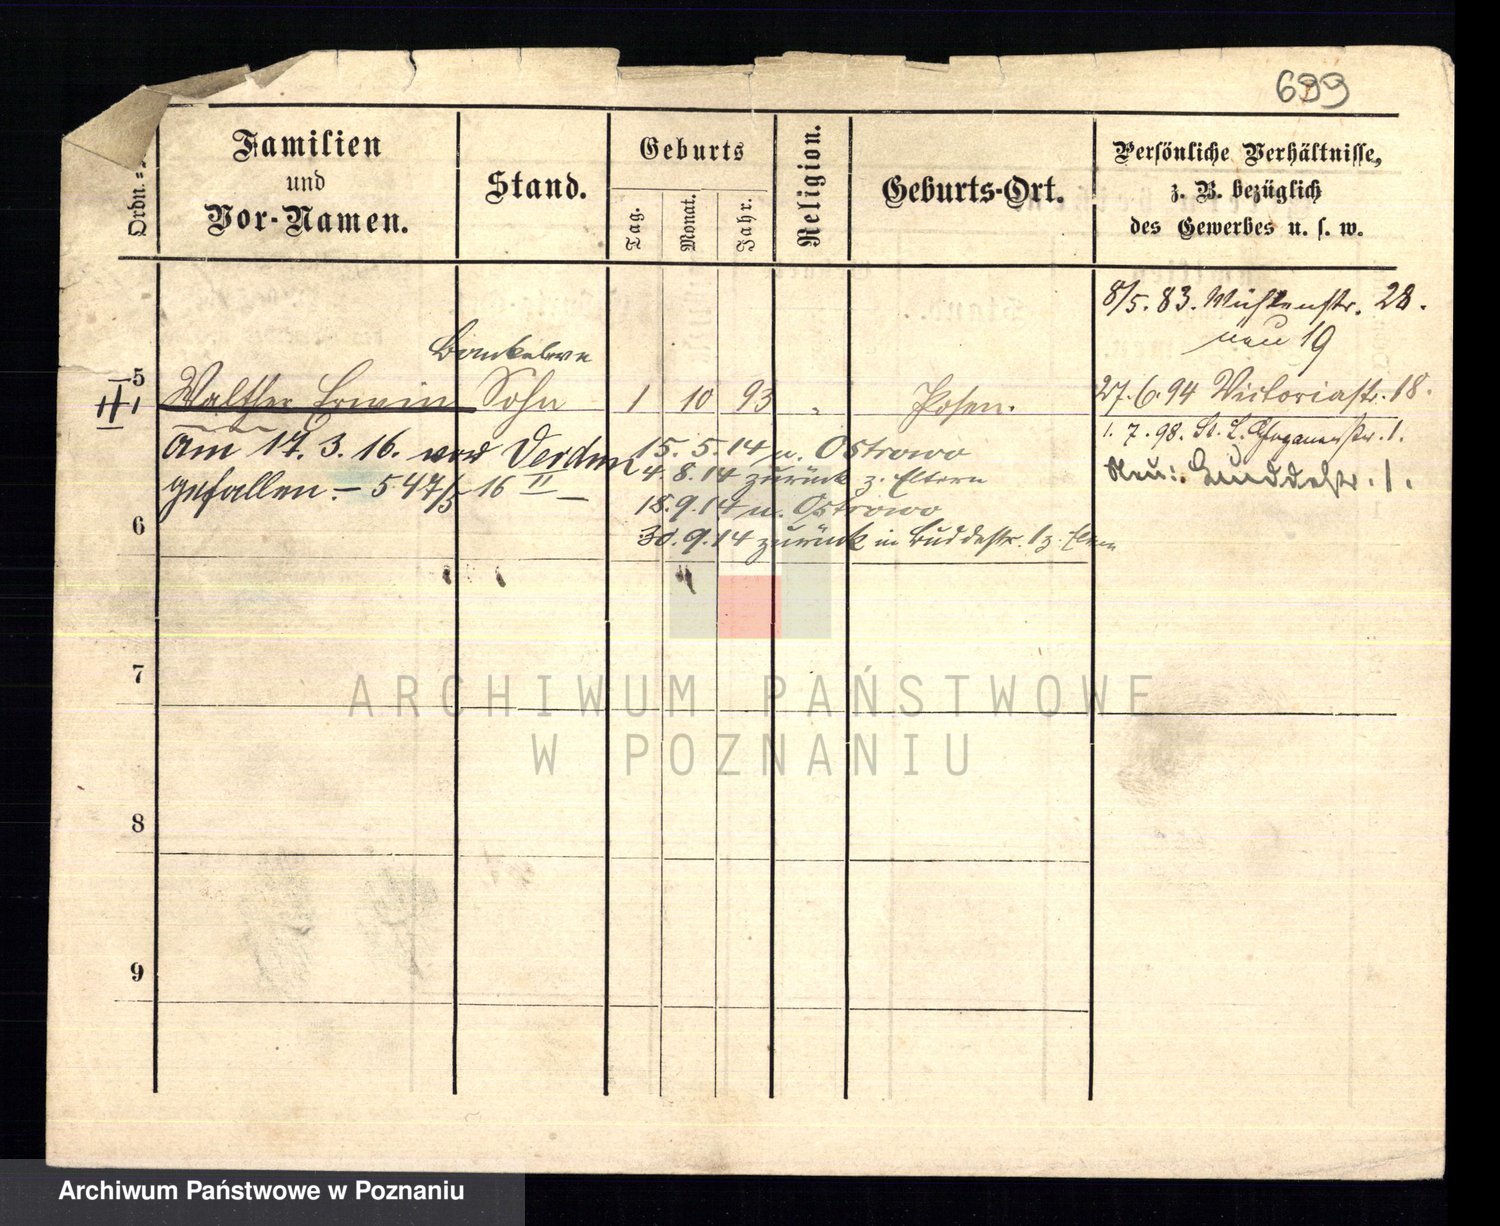 699
Ordn.
Familien
und
Vor-Namen.
Stand.
Geburts
Tag.
Monat.
Jahr.
Religion.
Geburts-Ort.
Persönliche Verhältnisse,
z. B. bezüglich
des Gewerbes u. s. w.
8/5. 83. 28.
neu 19
Bankeleve
5
II 1 Walther Erwin Sohn 1 10 93 " Posen.
27. 6. 94 Victoriastr. 18.
1. 7. 98. St. L. 1.
Neu: Buddestr. 1.
am 17. 3. 16. vor Verdun
gefallen. – 547/5 16 II –
15. 5. 14 n. Ostrowo
4. 8. 14 zurück z. Eltern
18. 9. 14 n. Ostrowo
30. 9. 14 zurück in Buddestr. 1 z. Eltern
6
7
8
9
ARCHIWUM PAŃSTWOWE
W POZNANIU
Archiwum Państwowe w Poznaniu